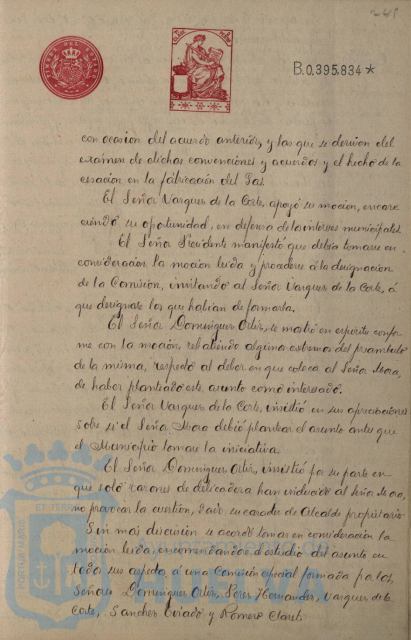 248
B.0.395.834*
con ocasion del acuerdo anterior, y las que se derivan del
examen de dichas convenciones y acuerdos y el hecho de la
cesacion en la fabricación del Gas.
El Señor Vazques de la Corte, apoyó su mocion, encare
ciendo su oportunidad, en defensa de los intereses municipales
El Señor Presidente manifestó que debia tomarse en
consideración la mocion leida y proceder á la designacion
de la Comision, invitando al Señor Vazques de la Corte, á
que designase los que habian de formarla.
El Señor Dominguez Ortiz, se mostró en espiritu confor
me con la mocion, rebatiendo algunos extremos del preambulo
de la misma, respecto al deber en que coloca al Señor Mora,
de haber planteado este asunto como interesado.
El Señor Vazques de la Corte, insistió en sus apreciaciones
sobre si el Señor Mora debió plantear el asunto antes que
el Municipio tomase la iniciativa.
El Señor Dominguez Ortiz, insistió por su parte en
que solo razones de delicadeza han inducido al Señor Mora,
no provocar la cuestion, dado su caracter de Alcalde propietario
Sin mas discusion se acordó tomar en consideración la
mocion leida, encomendando el estudio del asunto en
todos sus aspectos á una Comision especial formada por los
Señores Dominguez Ortiz, Perez Hernandez, Vazques de la
Corte, Sanchez Oviado y Romero Claret.